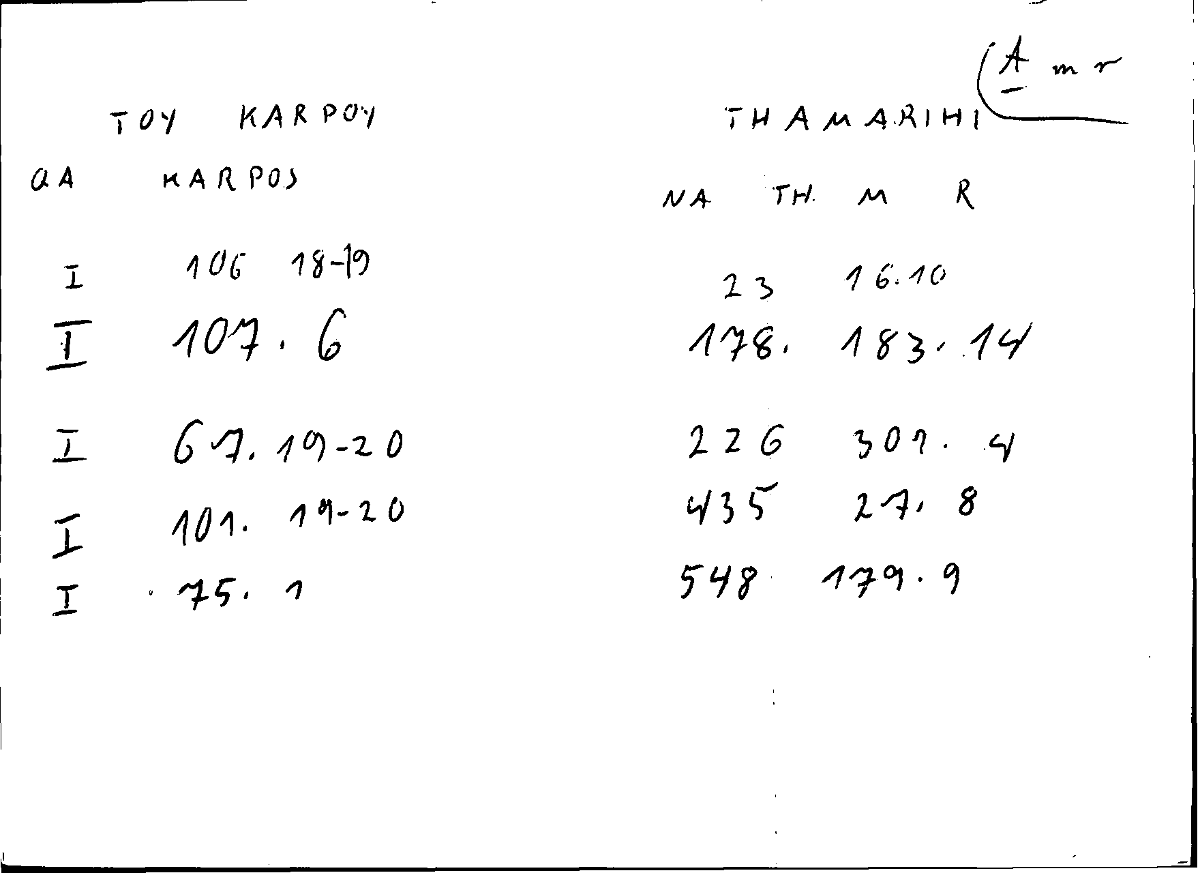 A m r
TOY KARPOY THAMARIHI
QA KARPOS NA TH. M R
I 106 18-19 23 16.10
I 107.6 178. 183.14
I 67.19-20 226 301. 4
I 101. 19-20 435 27. 8
I 75. 1 548 179.9